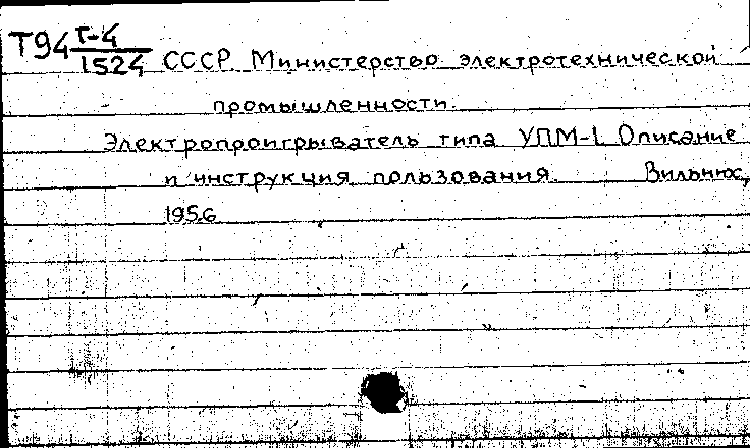 Т94 Г-4
1524 СССР. Министерство электротехнической
промышленности.
Электропроигрыватель типа УПМ-1. Описание
и инструкция пользования. Вильнюс,
1956